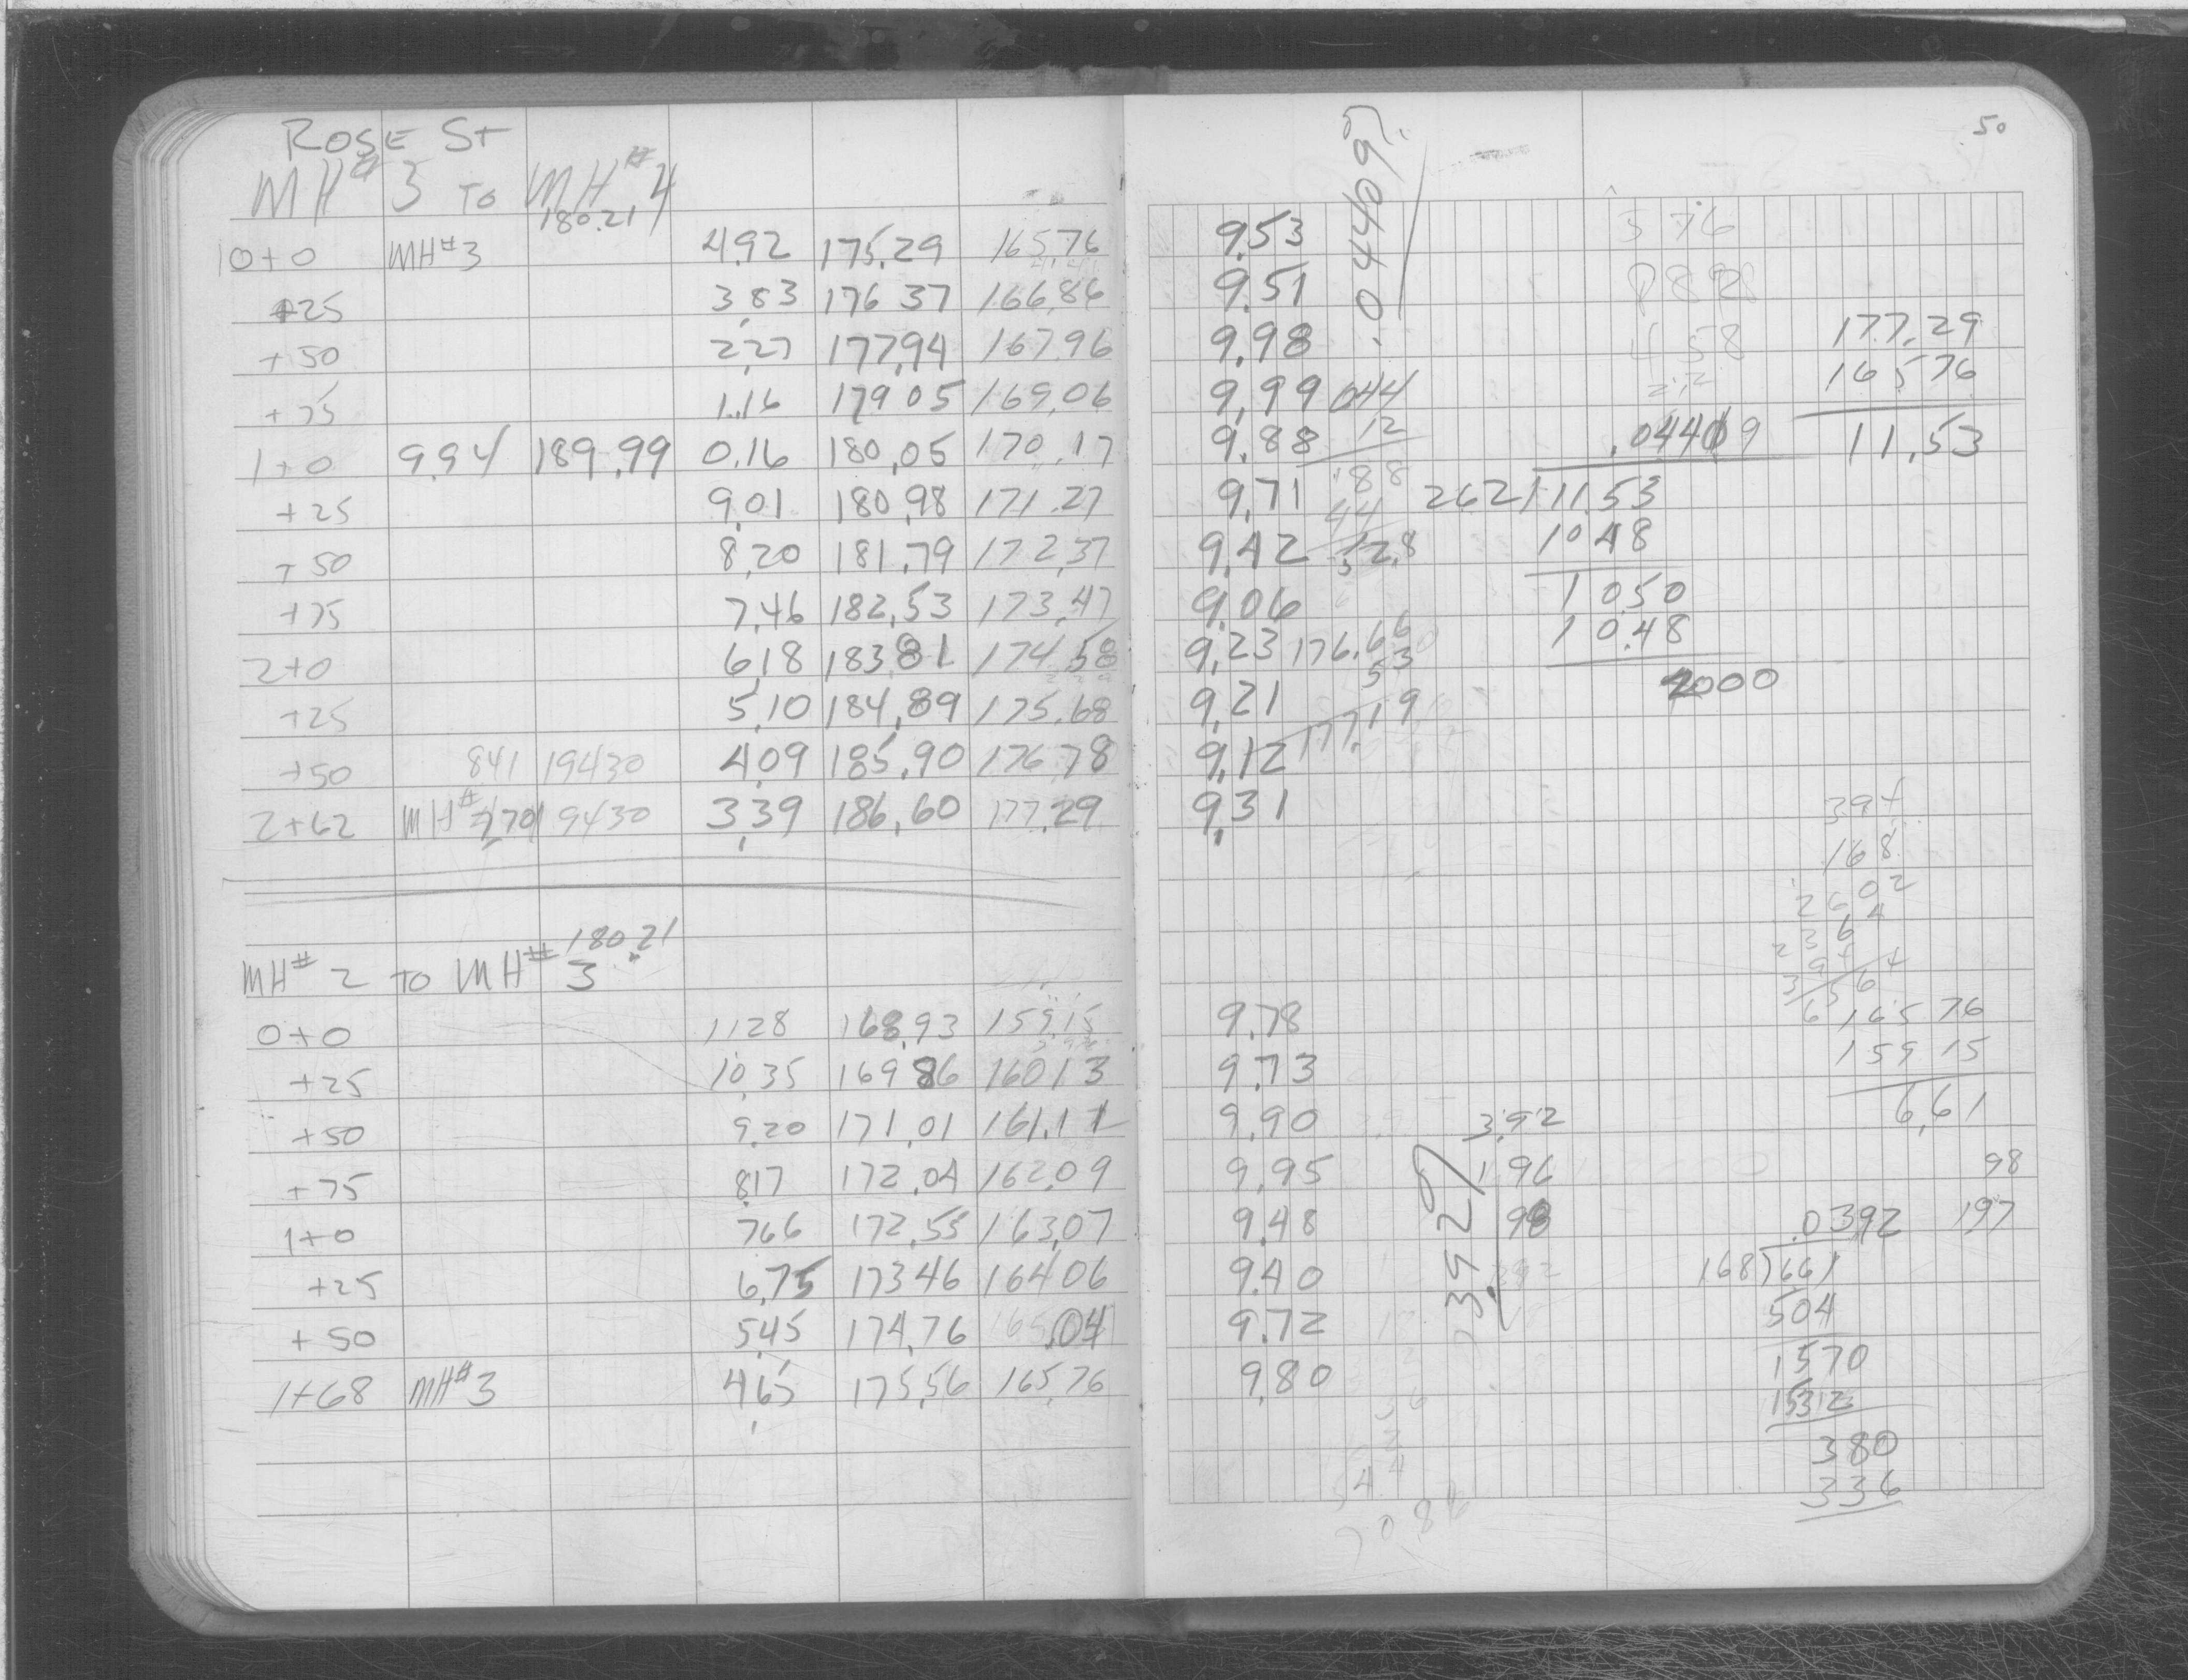 50
ROSE St
MH#3 TO MH#4
180.21
10+0 MH#3 4.92 175.29 165.76 9.53
+25 3.83 176 37 166.86 9.51
+50 2.27 177.94 167.96 9.98
+75 1.16 179 05 169.06 9.99
1+0 9.94 189.99 0.16 180.05 170.17 9.88
+25 9.01 180.98 171.27 9.71
+50 8.20 181.79 172.37 9.42
+75 7.46 182.53 173.47 9.06
2+0 6.18 183 81 174.58 9.23
+25 5.10 184.89 175.68 9.21
+50 841 194 30 4.09 185.90 176 78 9.12
2+62 MH# 770 194 30 3.39 186.60 177.29 9.31
180.21
MH# 2 TO MH# 3
0+0 11 28 168.93 159.15 9.78
+25 10.35 169 86 160 13 9.73
+50 9.20 171.01 161.11 9.90
+75 8.17 172.04 162.09 9.95
1+0 7 66 172.55 163.07 9.48
+25 6.75 173 46 164 06 9.40
+50 5.45 174.76 165.04 9.72
1+68 MH#3 4.65 175.56 165.76 9.80
.04409%
044
12
88
44
12.8
5
176.66
53
177.19
576
458
2.2
177.29
165 76
11.53
.04409
262)11.53
10 48
1 050
1 048
2000
394
168
165 76
159 15
6.61
3.92
1 96
98
.0392%
98
197
.0392
168)661
504
1570
1512
380
336